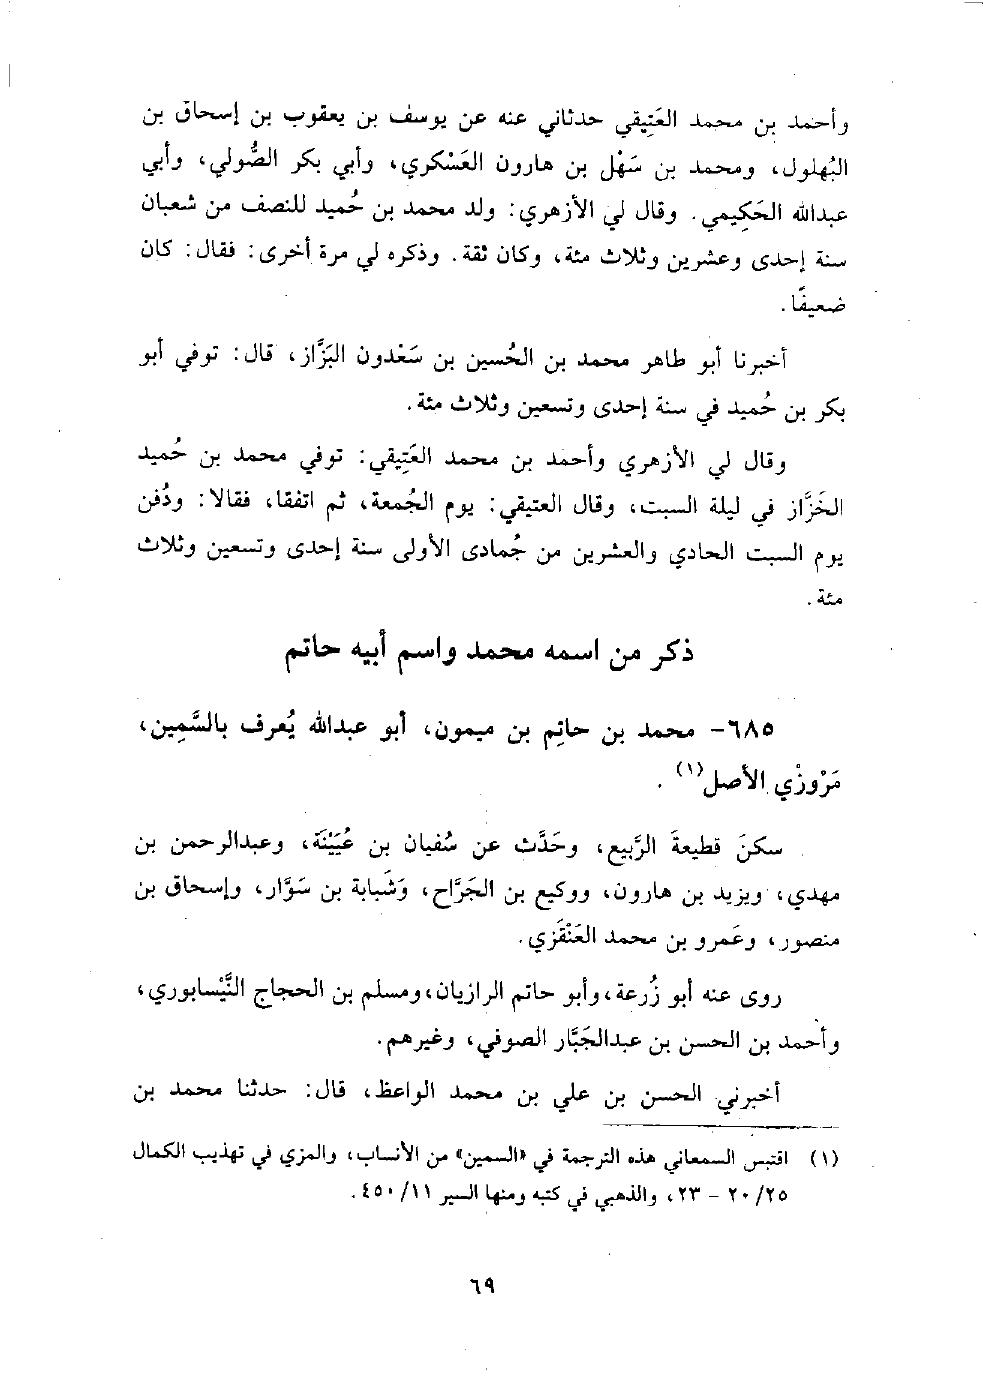 وأحمد بن محمد العَتِيقي حدثاني عنه عن يوسف بن يعقوب بن إسحاق بن
البُهلول، ومحمد بن سَهْل بن هارون العَسْكري، وأبي بكر الصُّولي، وأبي
عبدالله الحَكِيمي. وقال لي الأزهري: ولد محمد بن حُميد للنصف من شعبان
سنة إحدى وعشرين وثلاث مئة، وكان ثقة. وذكره لي مرة أخرى: فقال: كان
ضعيفًا.
أخبرنا أبو طاهر محمد بن الحُسين بن سَعْدون البَزَّاز، قال: توفي أبو
بكر بن حُميد في سنة إحدى وتسعين وثلاث مئة.
وقال لي الأزهري وأحمد بن محمد العَتِيقي: توفي محمد بن حُميد
الخَزَّاز في ليلة السبت، وقال العتيقي: يوم الجُمعة، ثم اتفقا، فقالا: ودُفن
يوم السبت الحادي والعشرين من جُمادى الأولى سنة إحدى وتسعين وثلاث
مئة.
ذكر من اسمه محمد واسم أبيه حاتم
٦٨٥- محمد بن حاتِم بن ميمون، أبو عبدالله يُعرف بالسَّمِين،
مَرْوزْي الأصل(١).
سكنَ قطيعةَ الرَّبيع، وحَدَّث عن سُفيان بن عُيَيْنَة، وعبدالرحمن بن
مهدي، ويزيد بن هارون، ووكيع بن الجَرَّاح، وَشَبابة بن سَوَّار، وإسحاق بن
منصور، وعَمرو بن محمد العَنْقَزي.
روى عنه أبو زُرعة، وأبو حاتم الرازيان، ومسلم بن الحجاج النَّيْسابوري،
وأحمد بن الحسن بن عبدالجَبَّار الصوفي، وغيرهم.
أخبرني الحسن بن علي بن محمد الواعظ، قال: حدثنا محمد بن
(١) اقتبس السمعاني هذه الترجمة في «السمين» من الأنساب، والمزي في تهذيب الكمال
٢٥/ ٢٠ - ٢٣، والذهبي في كتبه ومنها السير ١١/ ٤٥٠.
٦٩